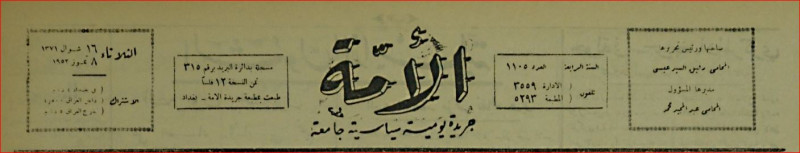 صاحبها ورئيس تحريرها
المحامي رئيس السيد عيسى
مديرها المسؤول
المحامي عبد المجيد محمد
السنة الرابعة العدد ١١٠٥
تلفون الادارة ٣٥٥٩
المطبعة ٥٢٩٣
الأمّة
جريدة يومية سياسية جامعة
مسجلة بدائرة البريد برقم ٣١٥
ثمن النسخة ١٢ فلساً
طبعت بمطبعة جريدة الامة ـ بغداد
الثلاثاء
١٦ شوال ١٣٧١
٨ تموز ١٩٥٢
الاشتراك
داخل العراق
خارج العراق